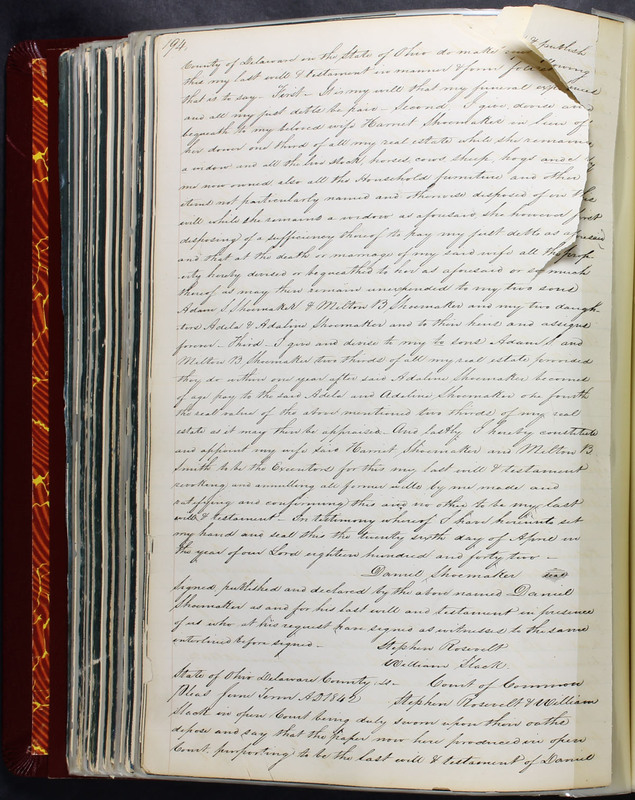 194.
County of Delaware in the State of Ohio do make and & publish
this my last will & testament in manner & form following
that is to say – First – It is my will that my funeral expenses
and all my just debts be paid – Second. I give, devise and
bequeath to my beloved wife Harriet Shoemaker in lieu of
her dower one third of all my real estate while she remains
a widow and all the live stock, horses, cows sheep, hogs and by
me now owned also all the Household furniture and other
items not particularly named and otherwise disposed of in this
will while she remains a widow as aforesaid she however first
disposing of a sufficiency thereof to pay my just debts as aforesaid
and that at the death or marriage of my said wife all the prop-
erty hereby devised or bequeathed to her as aforesaid or so much
thereof as may then remain unexpended to my two sons
Adam S. Shoemaker & Melton B Shoemaker and my two daugh-
ters Adela & Adaline Shoemaker and to their heirs and assigns
forever – Third – I give and devise to my to sons Adam S. and
Melton B. Shoemaker two thirds of all my real estate provided
they do within one year after said Adaline Shoemaker becomes
of age pay to the said Adela and Adaline Shoemaker one fourth
the real value of the above mentioned two thirds of my real
estate as it may then be appraised – And lastly. I hereby constitute
and appoint my wife said Harriet Shoemaker and Melton B
Smith to be the Executors for this my last will & testament
revoking and annulling all former wills by me made and
ratifying and confirming this and no other to be my last
will & testament – In testimony whereof I have hereunto set
my hand and seal this the twenty sixth day of April in
the year of our Lord eighteen hundred and forty two –
Daniel Shoemaker seal
Signed, published and declared by the above named Daniel
Shoemaker as and for his last will and testament in presence
of us who at his request have signed as witnesses to the same
interlined before signed –
Stephen Rosevelt
William Slack
State of Ohio Delaware County ss – Court of Common
Pleas June Term AD 1842 Stephen Rosevelt & William
Slack in open Court being duly sworn upon their oaths
depose and say that the paper now here produced in open
Court, purporting to be the last will & testament of Daniel